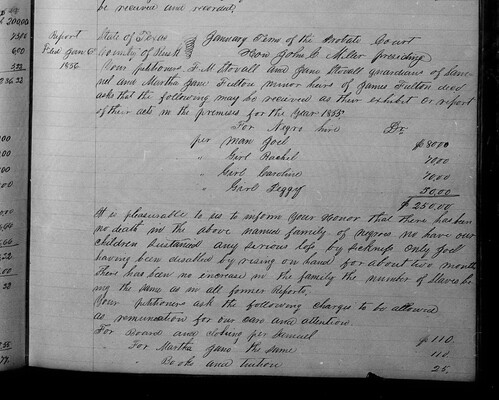 be received and recorded
Report State of Texas January Term of the Probate Court
Filed Jan 6 County of Rusk Hon John C. Miller presiding
1856. Your petitioners F. M. Stovall and Jane Stovall guardians of Sam-
uel and Martha Jane Fulton minor heirs of James Fulton decd
asks that the following may be received as their exhibit or report
of their acts in the premises for the Year 1855.
For Negro hire Dr.
per Man Joel $80.00
" Girl Rachel 70.00
" Girl Caroline 70.00
" Girl Peggy 30.00
$250.00
It is pleasurable to us to inform Your Honor that there has been
no death in the above named family of negroes no have our
children sustained any serious loss by sickness only Joel
having been disabled by rising on hand for about two month
There has been no increase in the family the number of Slaves be
ing the same as in all former Reports,
Your petitioners ask the following charges to be allowed
as remuneration for our care and attention.
For Board and clothing per Samuel $110.
For Martha Jane the same 110.
" Books and tuition 25.